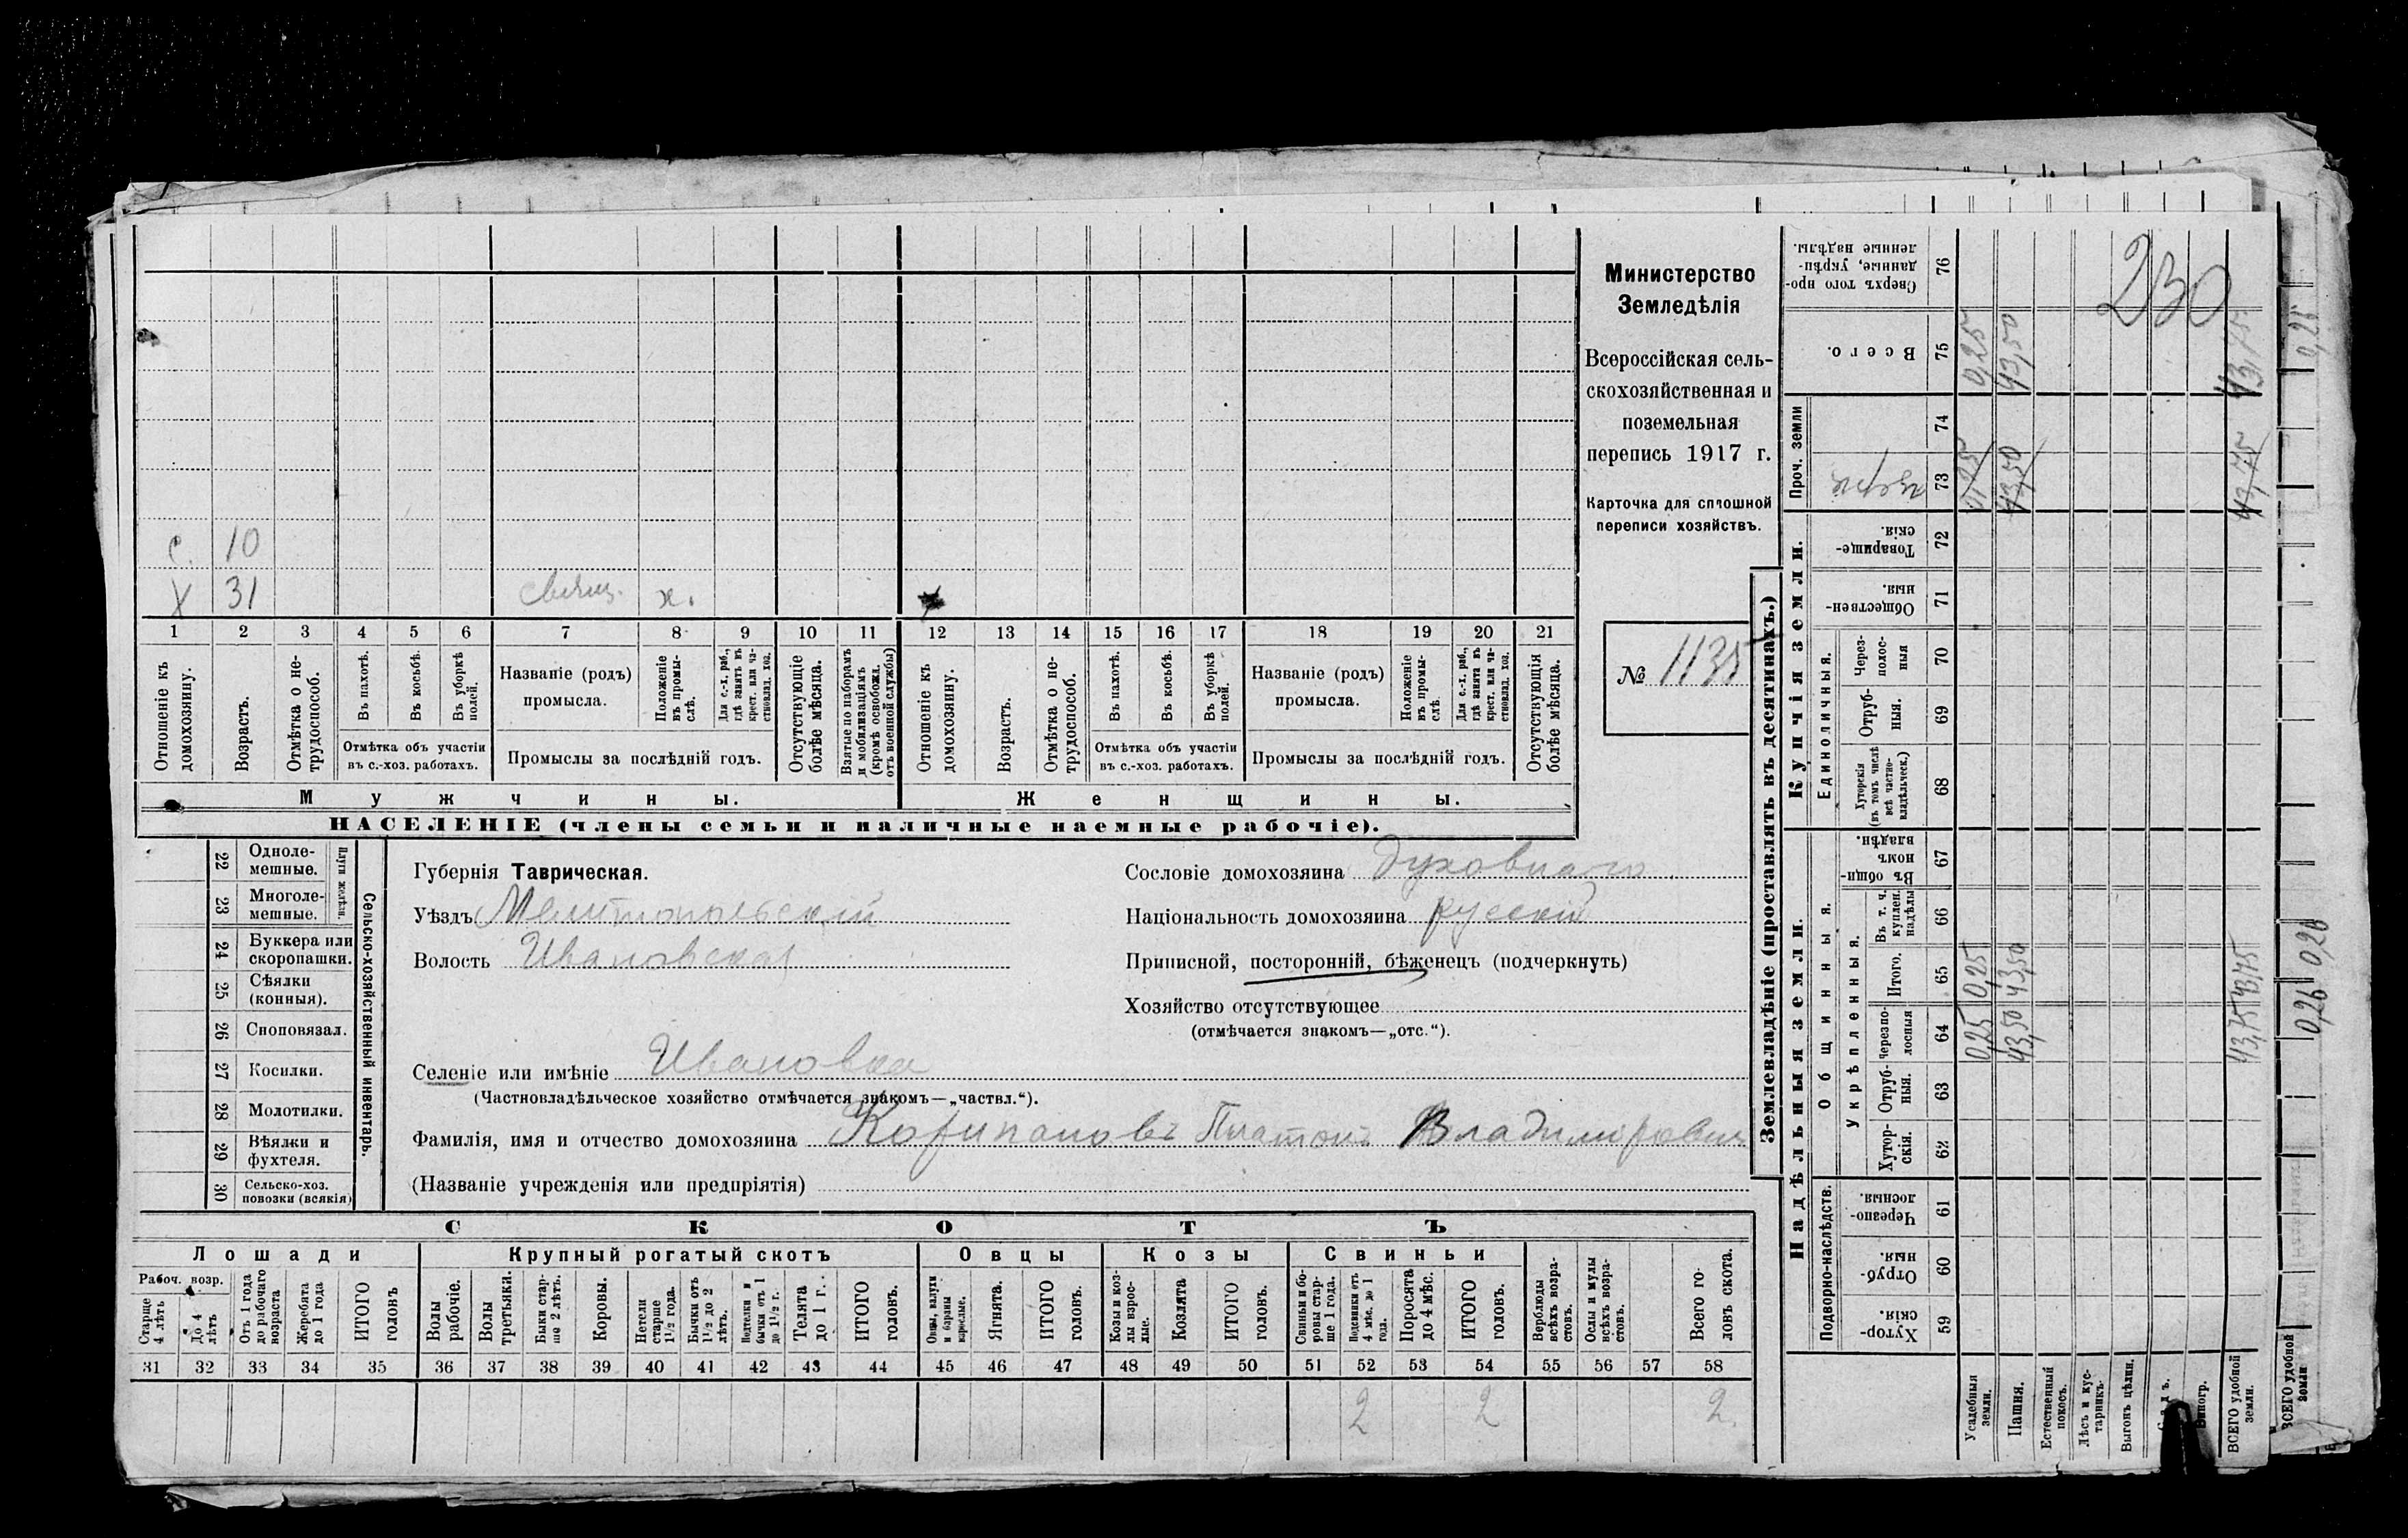 с. 10
х 31 свящ. х.
1 2 3 4 5 6 7 8 9 10 11 12 13 14 15 16 17 18 19 20 21
Отношеніе къ домохозяину.
Возрастъ.
Отмѣтка о нетрудоспособ.
Въ пахотѣ.
Въ косьбѣ.
Въ уборкѣ полей.
Отмѣтка объ участіи
въ с.-хоз. работахъ.
Названіе (родъ)
промысла.
Положеніе въ промыслѣ.
Для с.-х. раб., гдѣ занятъ въ крест. или частновлад. хоз.
Промыслы за послѣдній годъ.
Отсутствующіе болѣе мѣсяца.
Взятые по наборамъ и мобилизаціямъ (кромѣ освобожд. отъ военной службы)
Отношеніе къ домохозяину.
Возрастъ.
Отмѣтка о нетрудоспособ.
Въ пахотѣ.
Въ косьбѣ.
Въ уборкѣ полей.
Отмѣтка объ участіи
въ с.-хоз. работахъ.
Названіе (родъ)
промысла.
Положеніе въ промыслѣ.
Для с.-х. раб., гдѣ занята въ крест. или частновлад. хоз.
Промыслы за послѣдній годъ.
Отсутствующія болѣе мѣсяца.
Мужчины. Женщины.
НАСЕЛЕНІЕ (члены семьи и наличные наемные рабочіе).
Министерство
Земледѣлія
Всероссійская сель-
скохозяйственная и
поземельная
перепись 1917 г.
Карточка для сплошной
переписи хозяйствъ.
№ 1135
Сельско-хозяйственный инвентарь.
Плуги желѣзн.
22 Однолемешные.
23 Многолемешные.
24 Буккера или скоропашки.
25 Сѣялки (конныя).
26 Сноповязал.
27 Косилки.
28 Молотилки.
29 Вѣялки и фухтеля.
30 Сельско-хоз. повозки (всякія)
Губернія Таврическая.
Уѣздъ Мелитопольскій
Волость Ивановская
Сословіе домохозяина духовнаго
Національность домохозяина русскій
Приписной, посторонній, бѣженецъ (подчеркнуть)
Хозяйство отсутствующее
(отмѣчается знакомъ—„отс.“).
Селеніе или имѣніе Ивановка
(Частновладѣльческое хозяйство отмѣчается знакомъ—„частвл.“).
Фамилія, имя и отчество домохозяина Платонъ Владимировичъ
(Названіе учрежденія или предпріятія)
СКОТЪ
Лошади Крупный рогатый скотъ Овцы Козы Свиньи
Рабоч. возр.
Старше 4 лѣтъ
До 4 лѣтъ
Отъ 1 года до рабочаго возраста
Жеребята до 1 года
ИТОГО головъ
Волы рабочіе.
Волы третьяки.
Быки старше 2 лѣтъ.
Коровы.
Нетели старше 1½ года.
Бычки отъ 1½ до 2 лѣтъ.
Подтелки и бычки отъ 1 до 1½ г.
Телята до 1 г.
ИТОГО головъ.
Овцы, валухи и бараны взрослые.
Ягнята.
ИТОГО головъ.
Козы и козлы взрослые.
Козлята
ИТОГО головъ.
Свиньи и боровы старше 1 года.
Подсвинки отъ 4 мѣс. до 1 года.
Поросята до 4 мѣс.
ИТОГО головъ.
Верблюды всѣхъ возрастовъ.
Ослы и мулы всѣхъ возрастовъ.
Всего головъ скота.
31 32 33 34 35 36 37 38 39 40 41 42 43 44 45 46 47 48 49 50 51 52 53 54 55 56 57 58
2 2 2.
Землевладѣніе (проставлять въ десятинахъ.)
Надѣльныя земли. Купчія земли.
Подворно-наслѣдств.
Общинныя.
Укрѣпленныя.
Единоличныя.
Проч. земли
59 Хуторскія.
60 Отрубныя.
61 Черезполосныя.
62 Хуторскія.
63 Отрубныя.
64 Черезполосныя
65 Итого.
66 Въ т. ч. куплен. надѣлы
67 Въ общинномъ владѣн.
68 Хуторскія (въ томъ числѣ всѣ частновладѣльческ.)
69 Отрубныя.
70 Черезполосныя
71 Общественныя.
72 Товарищескія.
73 церк.
74
75 Всего.
76 Сверхъ того проданные, укрѣпленные надѣлы.
230
Усадебныя земли. 0,25 0,25 0,25 0,25
Пашня. 43,50 43,50 43,50 43,50
Естественный покосъ.
Лѣсъ и кустарникъ.
Выгонъ цѣлин.
Виногр.
ВСЕГО удобной земли. 43,75 43,75 43,75 43,75
ВСЕГО удобной земли 0,26 0,26 0,26